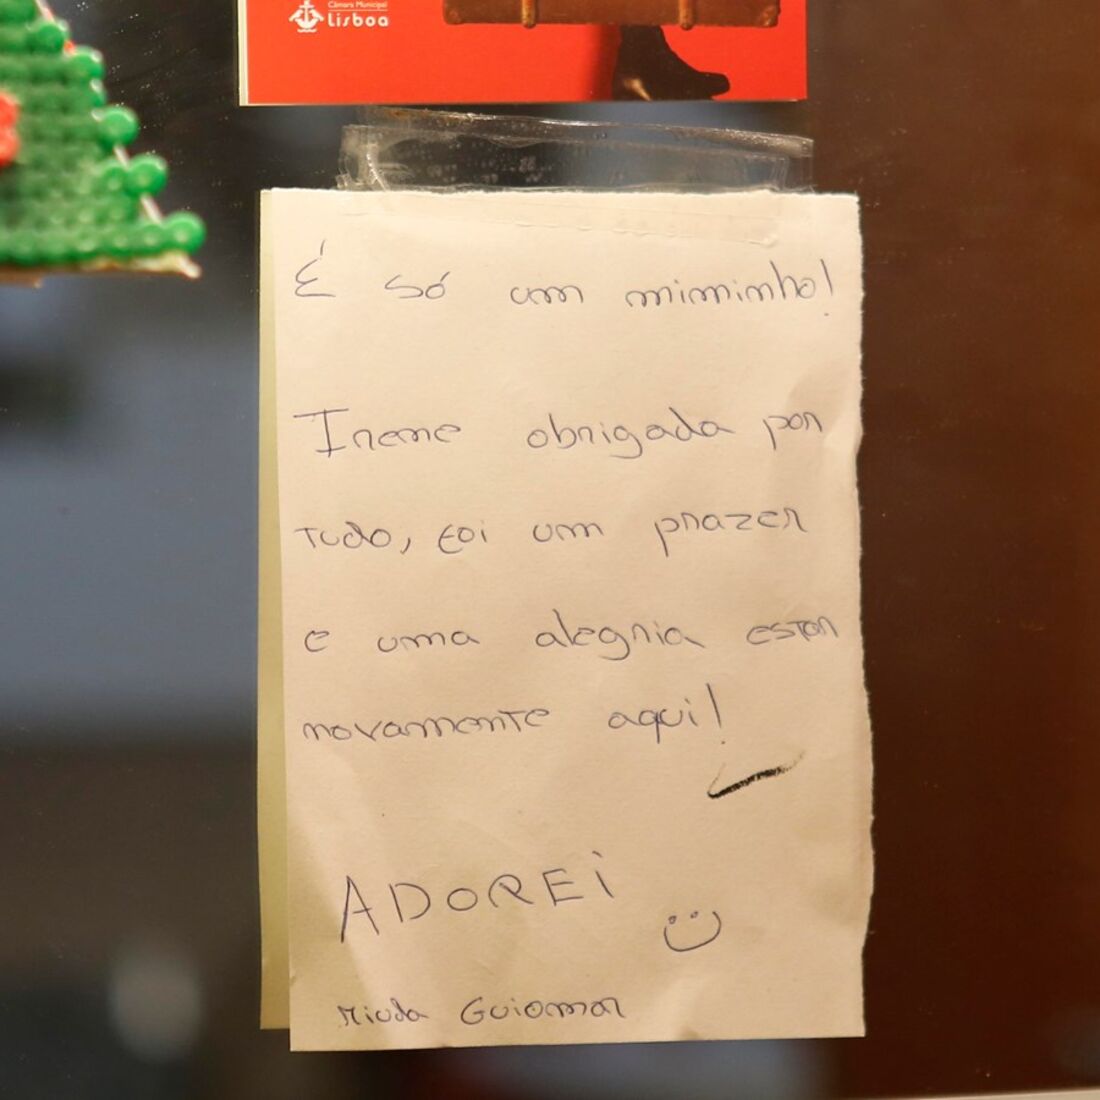 Câmara Municipal
Lisboa
É só um miminho!
Irene obrigada por
tudo, foi um prazer
e uma alegria estar
novamente aqui!
ADOREi
Miuda Guiomar